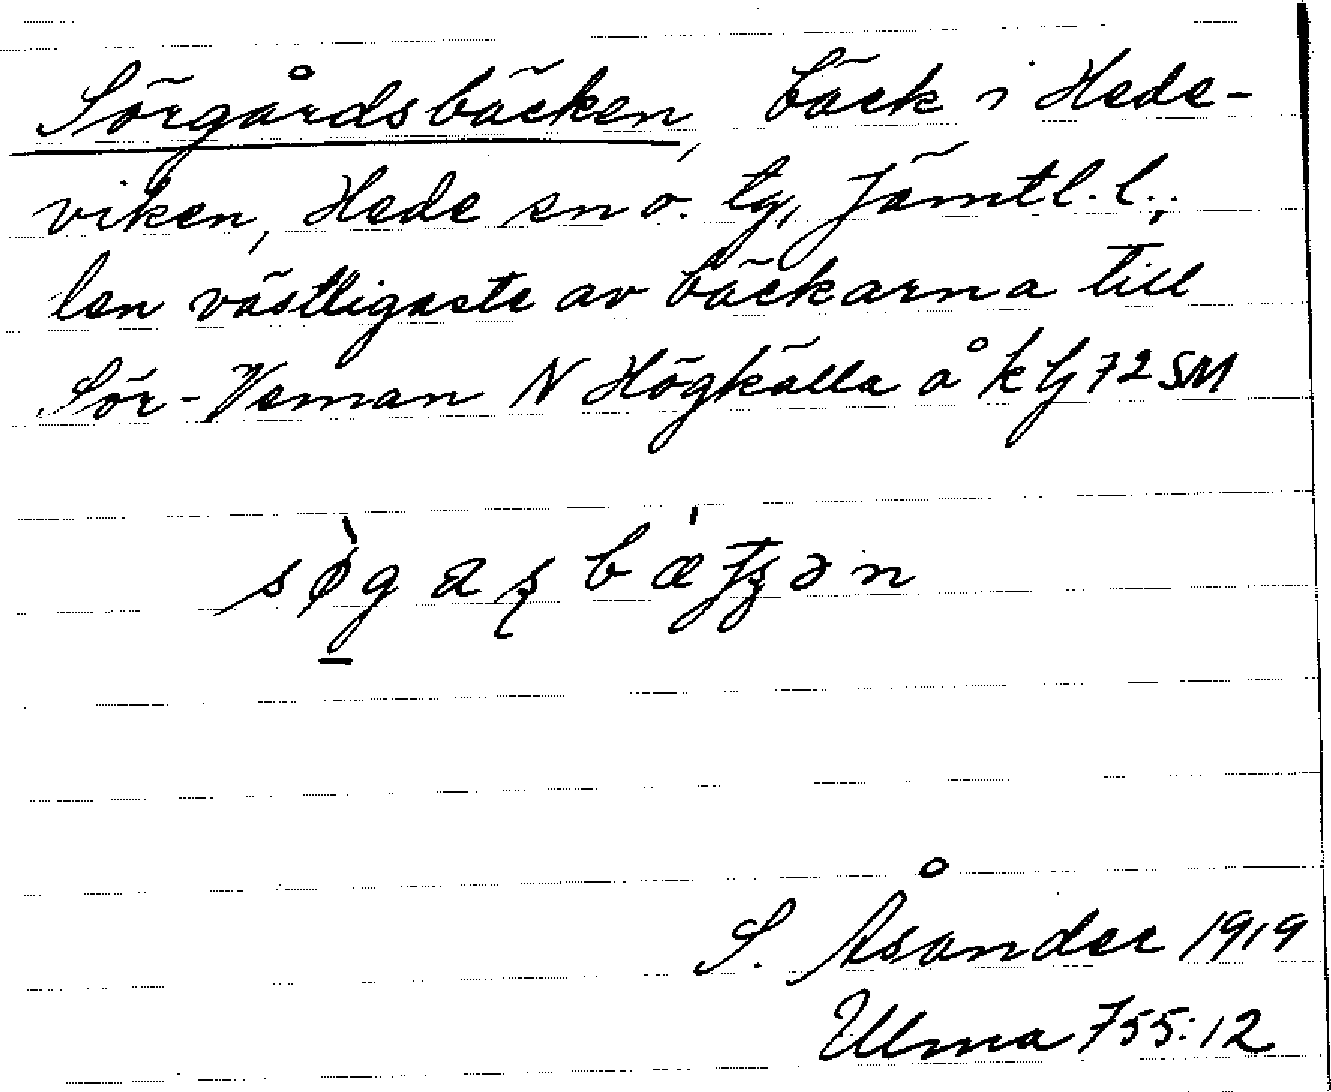 Sörgårdsbäcken, bäck i Hede-
viken, Hede sn o. tg, Jämtl. l.;
den västligaste av bäckarna till
Sör-Veman N Högkälla å kbl 72 SM
S. Åsander 1919
Ulma 755:12